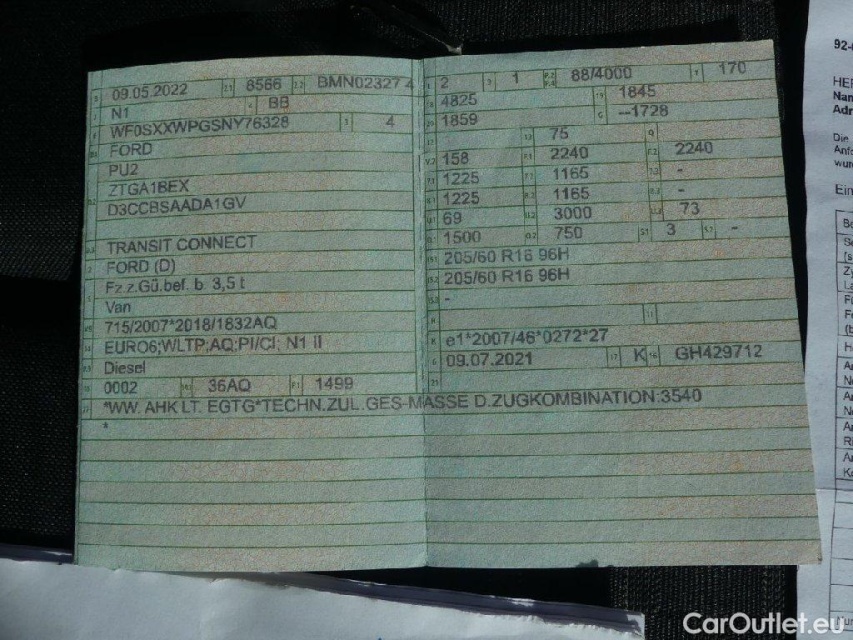 09.05.2022 2.1 8566 2.2 BMN02327 4
N1 BB
WF0SXXWPGSNY76328 3 4
FORD
PU2
ZTGA1BEX
D3CCBSAADA1GV
TRANSIT CONNECT
FORD (D)
Fz.z.Gü.bef. b. 3,5 t
Van
715/2007*2018/1832AQ
EURO6;WLTP;AQ;PI/CI; N1 II
Diesel
0002 36AQ P.1 1499
*WW. AHK LT. EGTG*TECHN.ZUL.GES-MASSE D.ZUGKOMBINATION:3540
*
2 1 P.2 P.4 88/4000 T 170
4825 1845
1859 G --1728
75 Q
158 F.1 2240 F.2 2240
1225 1165 -
1225 1165 -
69 3000 73
1500 O.2 750 S.1 3 S.2 -
205/60 R16 96H
205/60 R16 96H
-
e1*2007/46*0272*27
09.07.2021 17 K 16 GH429712
92-
HE
Nam
Adr
Die
Anf
wur
Ein
CarOutlet.eu